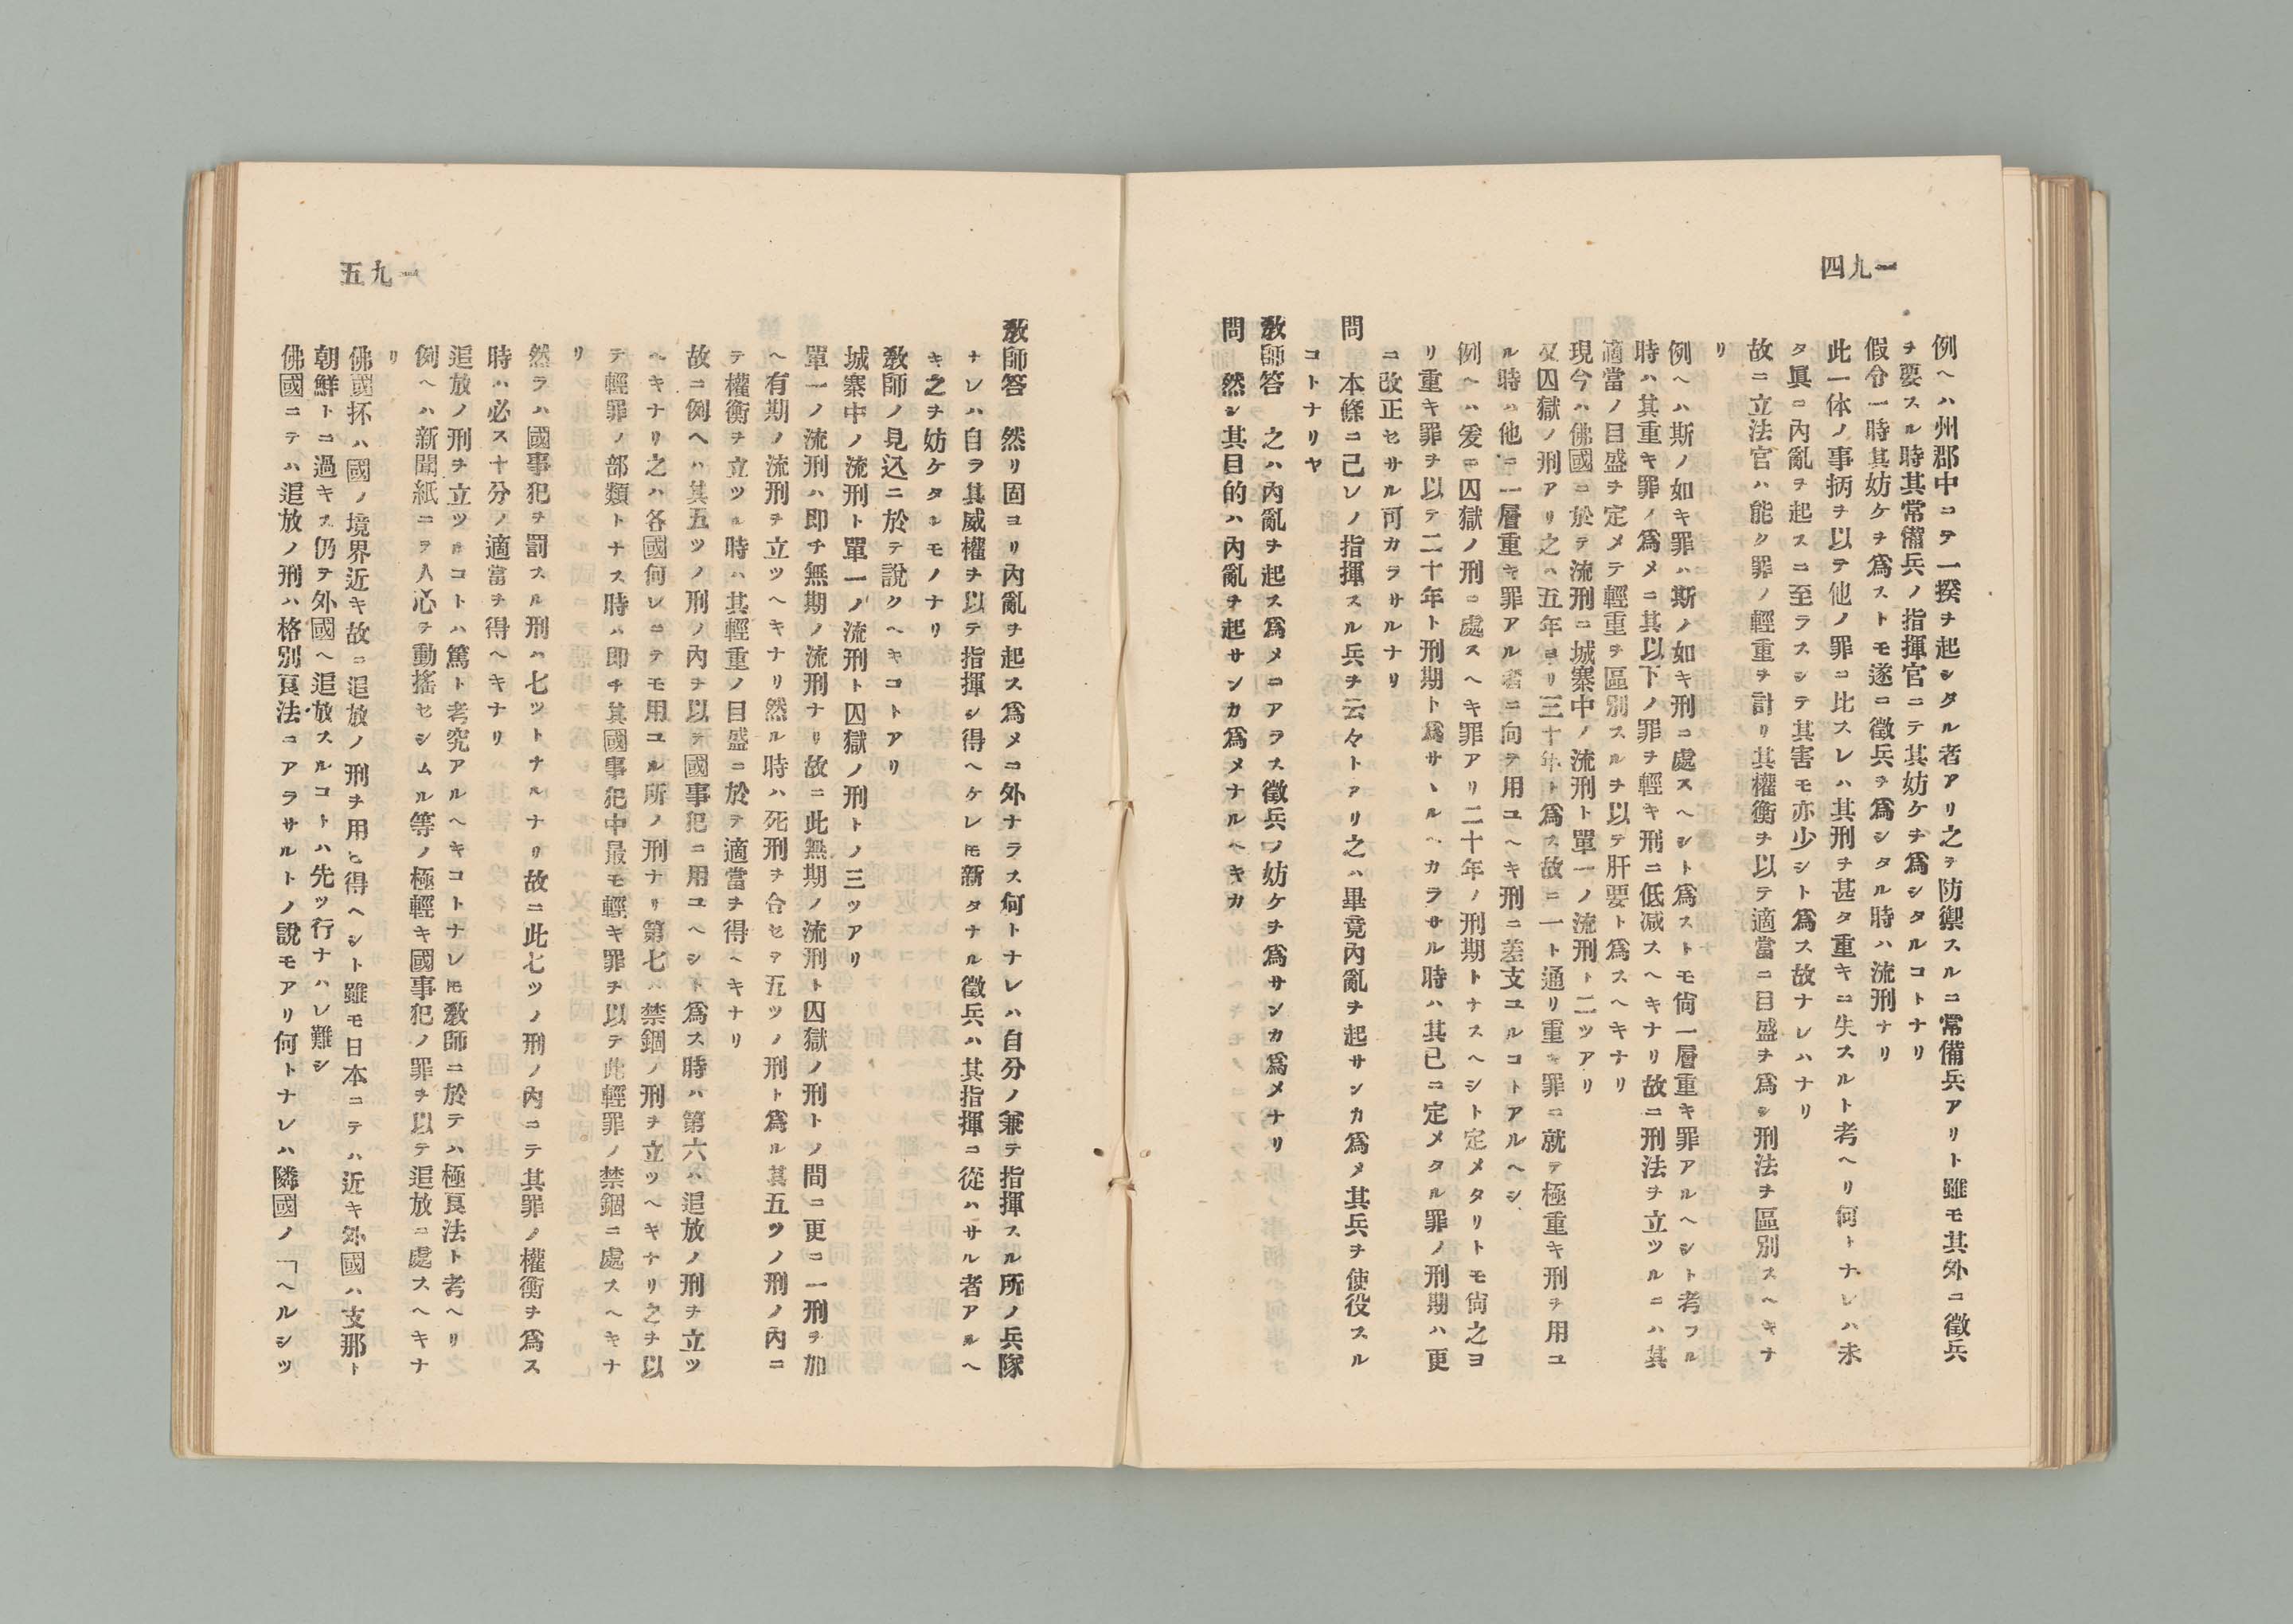 一九四
例ヘハ州郡中ニテ一揆ヲ起シタル者アリ之ヲ防禦スルニ常備兵アリト雖モ其外ニ徵兵
ヲ要スル時其常備兵ノ指揮官ニテ其妨ケヲ爲シタルコトナリ
假令一時其妨ケヲ爲ストモ遂ニ徵兵ヲ爲シタル時ハ流刑ナリ
此一体ノ事柄ヲ以テ他ノ罪ニ比スレハ其刑ヲ甚タ重キニ失スルト考ヘリ何トナレハ未
タ眞ニ內亂ヲ起スニ至ラスシテ其害モ亦少シト爲ス故ナレハナリ
故ニ立法官ハ能ク罪ノ輕重ヲ計リ其權衡ヲ以テ適當ニ目盛ヲ爲シ刑法ヲ區別スヘキナ
リ
例ヘハ斯ノ如キ罪ハ斯ノ如キ刑ニ處スヘシト爲ストモ尙一層重キ罪アルヘシト考フル
時ハ其重キ罪ノ爲メニ其以下ノ罪ヲ輕キ刑ニ低減スヘキナリ故ニ刑法ヲ立ツルニハ其
適當ノ目盛ヲ定メテ輕重ヲ區別スルヲ以テ肝要ト爲スヘキナリ
現今ハ佛國ニ於テ流刑ニ城寨中ノ流刑ト單一ノ流刑ト二ツアリ
又囚獄ノ刑アリ之ハ五年ヨリ三十年ト爲ス故ニ一ト通リ重キ罪ニ就テ極重キ刑ヲ用ユ
ル時ハ他ニ一層重キ罪アル者ニ向テ用ユヘキ刑ニ差支ユルコトアルヘシ
例ヘハ爰ニ囚獄ノ刑ニ處スヘキ罪アリ二十年ノ刑期トナスヘシト定メタリトモ尙之ヨ
リ重キ罪ヲ以テ二十年ト刑期ト爲サヽルヘカラサル時ハ其已ニ定メタル罪ノ刑期ハ更
ニ改正セサル可カラサルナリ
問　本條ニ己レノ指揮スル兵ヲ云々トアリ之ハ畢竟內亂ヲ起サンカ爲メ其兵ヲ使役スル
コトナリヤ
敎師答　之ハ內亂ヲ起ス爲メニアラス徵兵ノ妨ケヲ爲サンカ爲メナリ
問　然シ其目的ハ內亂ヲ起サンカ爲メナルヘキカ
一九五
敎師答　然リ固ヨリ內亂ヲ起ス爲メニ外ナラス何トナレハ自分ノ兼テ指揮スル所ノ兵隊
ナレハ自ラ其威權ヲ以テ指揮シ得ヘケレ𪜈新タナル徵兵ハ其指揮ニ從ハサル者アルヘ
キ之ヲ妨ケタルモノナリ
敎師ノ見込ニ於テ說クヘキコトアリ
城寨中ノ流刑ト單一ノ流刑ト囚獄ノ刑トノ三ツアリ
單一ノ流刑ハ即チ無期ノ流刑ナリ故ニ此無期ノ流刑ト囚獄ノ刑トノ間ニ更ニ一刑ヲ加
ヘ有期ノ流刑ヲ立ツヘキナリ然ル時ハ死刑ヲ合セテ五ツノ刑ト爲ル其五ツノ刑ノ內ニ
テ權衡ヲ立ツル時ハ其輕重ノ目盛ニ於テ適當ヲ得ヘキナリ
故ニ例ヘハ其五ツノ刑ノ內ヲ以テ國事犯ニ用ユヘシト爲ス時ハ第六ハ追放ノ刑ヲ立ツ
ヘキナリ之ハ各國何レニテモ用ユル所ノ刑ナリ第七ハ禁錮ノ刑ヲ立ツヘキナリ之ヲ以
テ輕罪ノ部類トナス時ハ即チ其國事犯中最モ輕キ罪ヲ以テ此輕罪ノ禁錮ニ處スヘキナ
リ
然ラハ國事犯ヲ罰スル刑ハ七ツトナルナリ故ニ此七ツノ刑ノ內ニテ其罪ノ權衡ヲ爲ス
時ハ必ス十分ノ適當ヲ得ヘキナリ
追放ノ刑ヲ立ツルコトハ篤ト考究アルヘキコトナレ𪜈敎師ニ於テハ極良法ト考ヘリ
例ヘハ新聞紙ニテ人心ヲ動搖セシムル等ノ極輕キ國事犯ノ罪ヲ以テ追放ニ處スヘキナ
リ
佛國抔ハ國ノ境界近キ故ニ追放ノ刑ヲ用ヒ得ヘシト雖モ日本ニテハ近キ外國ハ支那ト
朝鮮トニ過キス仍テ外國ヘ追放スルコトハ先ツ行ナハレ難シ
佛國ニテハ追放ノ刑ハ格別良法ニアラサルトノ說モアリ何トナレハ隣國ノ「ヘルシツ